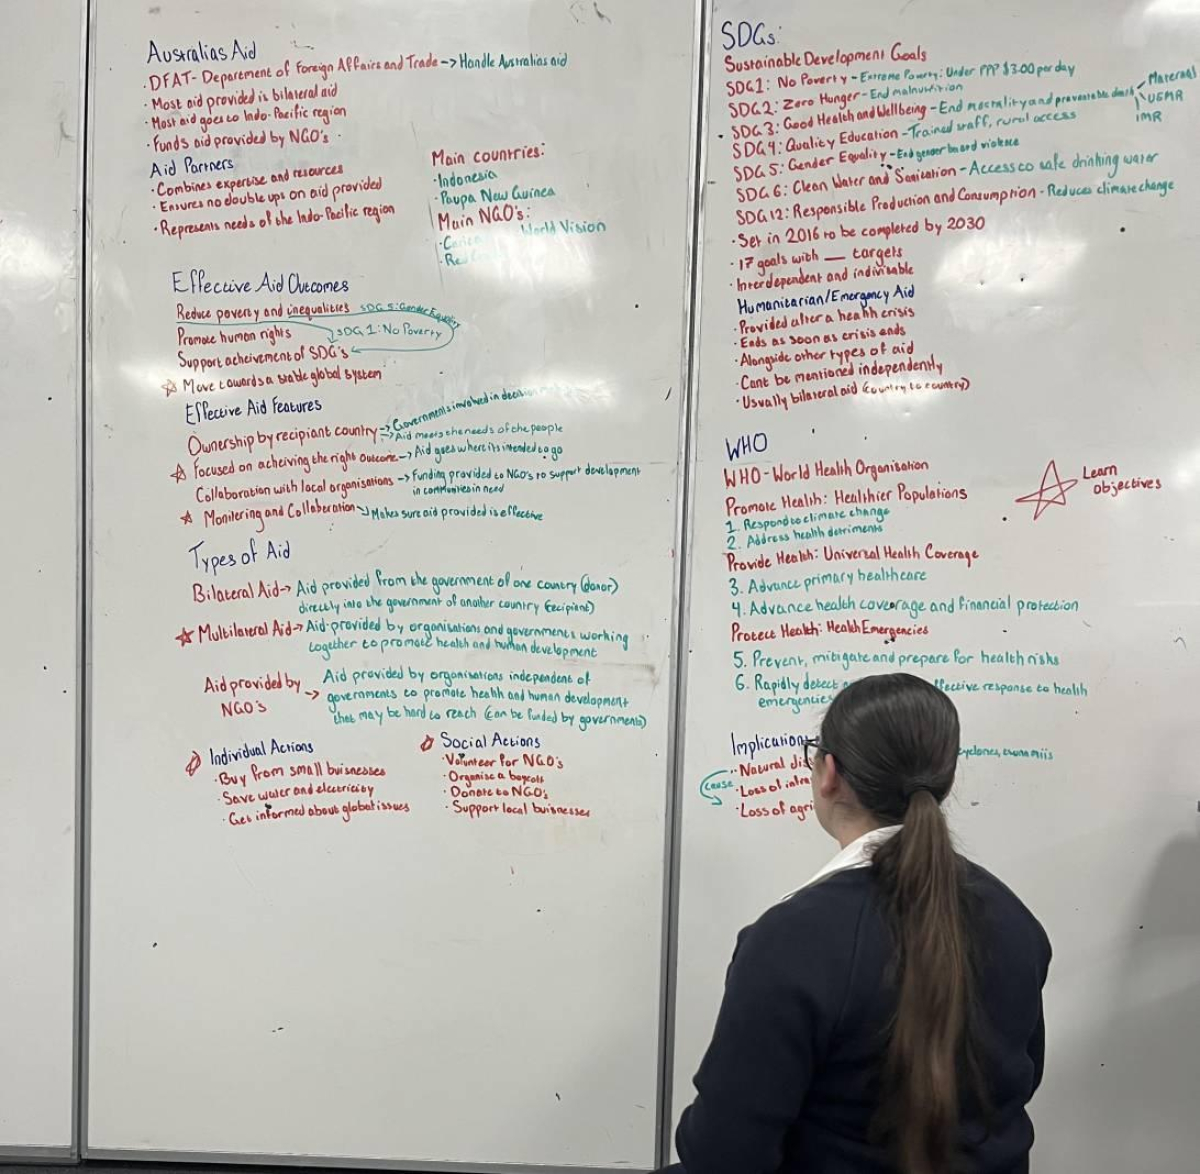 Australias Aid
· DFAT- Deparement of Foreign Affairs and Trade -> Handle Australias aid
· Most aid provided is bilateral aid
· Most aid goes to Indo-Pacific region
· Funds aid provided by NGO's
Aid Partners
· Combines expertise and resources
· Ensures no double ups on aid provided
· Represents needs of the Indo-Pacific region
Main countries:
· Indonesia
· Paupa New Guinea
Main NGO's:
World Vision
Effective Aid Outcomes
Reduce poverty and inequalities SDG 5: Gender Equality
Promote human rights SDG 1: No Poverty
Support acheivement of SDG's
☆ Move towards a stable global system
Effective Aid Features
Ownership by recipiant country -> Governments involved in decision
-> Aid meets the needs of the people
☆ Focused on acheiving the right outcome -> Aid goes where its intended to go
Collaboration with local organisations -> Funding provided to NGO's to support development
in communities in need
☆ Monitering and Collaboration -> Makes sure aid provided is effective
Types of Aid
Bilateral Aid -> Aid provided from the government of one country (donor)
directly into the government of another country (recipient)
☆ Multilateral Aid -> Aid provided by organisations and governments working
together to promote health and human development
Aid provided by
NGO's
-> Aid provided by organisations independent of
governments to promote health and human development
that may be hard to reach (can be funded by governments)
Individual Actions
· Buy from small buisnesses
· Save water and electricity
· Get informed about global issues
Social Actions
· Volunteer for NGO's
· Organise a boycott
· Donate to NGO's
· Support local buisnesses
SDGs:
Sustainable Development Goals
SDG 1: No Poverty - Extreme Poverty: Under PPP $3.00 per day
SDG 2: Zero Hunger - End malnutrition
SDG 3: Good Health and Wellbeing - End mortality and preventable death
Maternal
U5MR
IMR
SDG 4: Quality Education - Trained staff, rural access
SDG 5: Gender Equality - End gender based violence
SDG 6: Clean Water and Sanisation - Access to safe drinking water
SDG 12: Responsible Production and Consumption - Reduces climate change
· Set in 2016 to be completed by 2030
· 17 goals with __ targets
· Interdependent and indivisable
Humanitarian/Emergency Aid
· Provided after a health crisis
· Ends as soon as crisis ends
· Alongside other types of aid
· Cant be mentioned independently
· Usually bilateral aid (country to country)
WHO
WHO - World Health Organisation
Promote Health: Healthier Populations
1. Respond to climate change
2. Address health detriments
Provide Health: Universal Health Coverage
3. Advance primary healthcare
4. Advance health coverage and financial protection
Protect Health: Health Emergencies
5. Prevent, mitigate and prepare for health risks
6. Rapidly detect response to health
emergencies
☆ Learn
objectives
Implication
· Natural cyclones, tsunamiis
cause
· Loss of
· Loss of